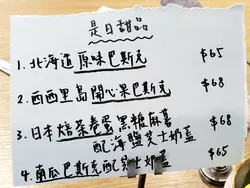 是日甜品
1. 北海道原味巴斯克 $65
2. 西西里島開心果巴斯克 $68
3. 日本焙茶卷蛋黑糖麻薯 $68
配海鹽芝士奶蓋
4. 南瓜巴斯克配芝士奶蓋 $65